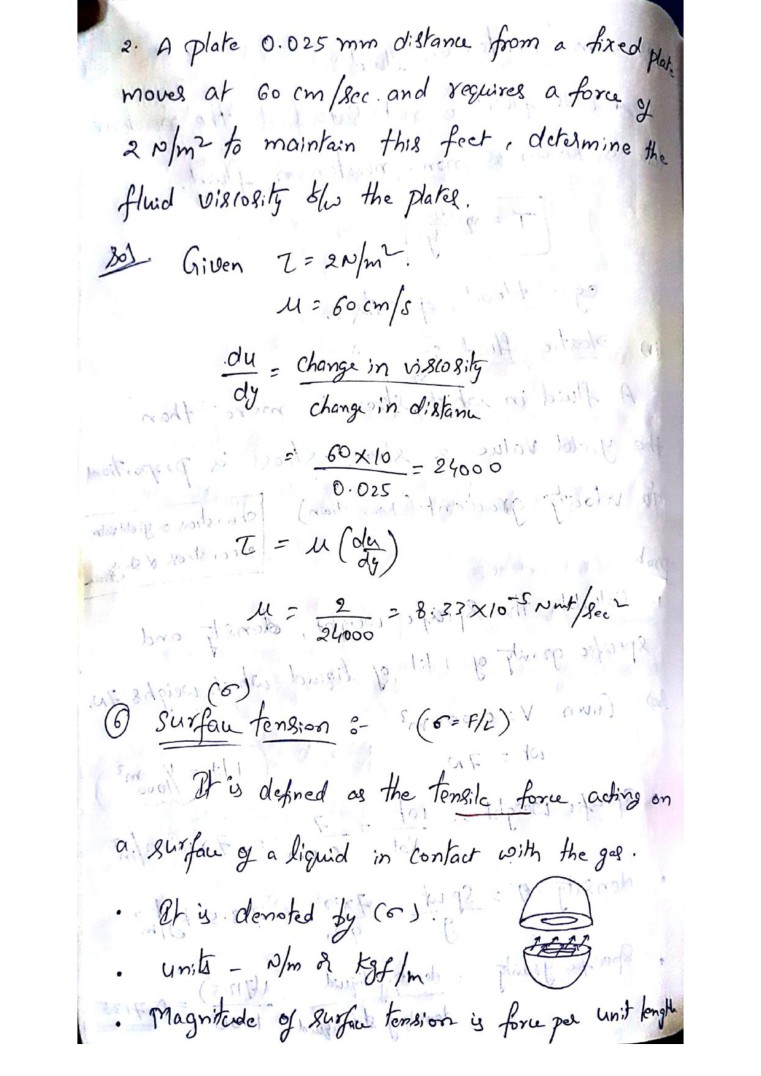 2. A plate 0.025 mm distance from a fixed plate
moves at 60 cm/sec. and requires a force of
2 N/m² to maintain this feet, determine the
fluid viscosity b/w the plates.
Sol. Given τ = 2N/m².
u = 60 cm/s
du/dy = change in viscosity / change in distance
= 60×10 / 0.025 = 24000
τ = μ (du/dy)
μ = 2/24000 = 8.33×10⁻⁵ /sec²
(σ)
⑥ Surface tension :- (σ = F/L)
It is defined as the tensile force acting on
a surface of a liquid in contact with the gas.
• It is denoted by (σ).
• units - N/m & kgf/m
• Magnitude of surface tension is force per unit length